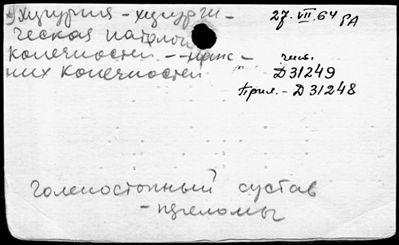 Хирургия - хирурги-
ческая патолог
конечностей. -- ниж-
них конечностей
27.VII.64 РА
чит.
Д31249
Прил. - Д31248
Голеностопный сустав
- переломы